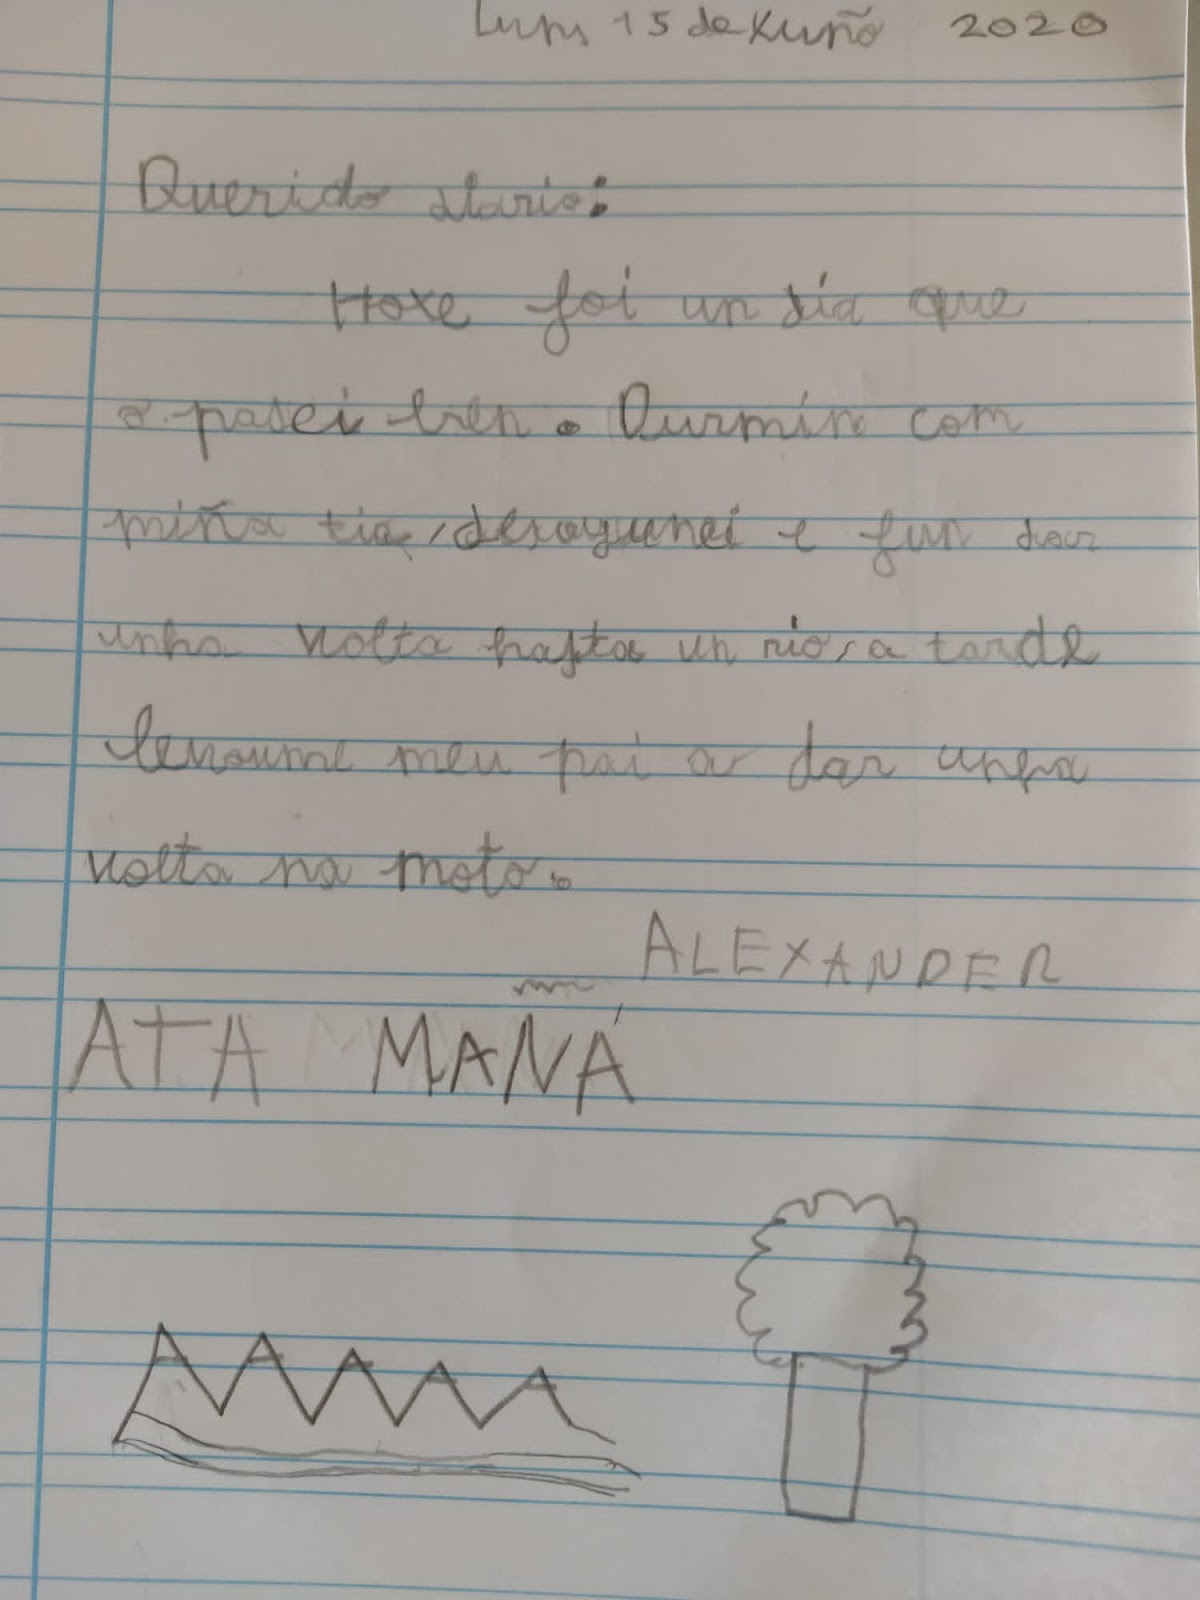 Luns 15 de Xuño 2020
Querido diario:
Hoxe foi un día que
o pasei ben. Durmín com
miña tia, desayunei e fun dar
unha volta hasta un rio, a tarde
levoume meu pai a dar unha
volta na moto.
ALEXANDER
ATA MAÑÁ